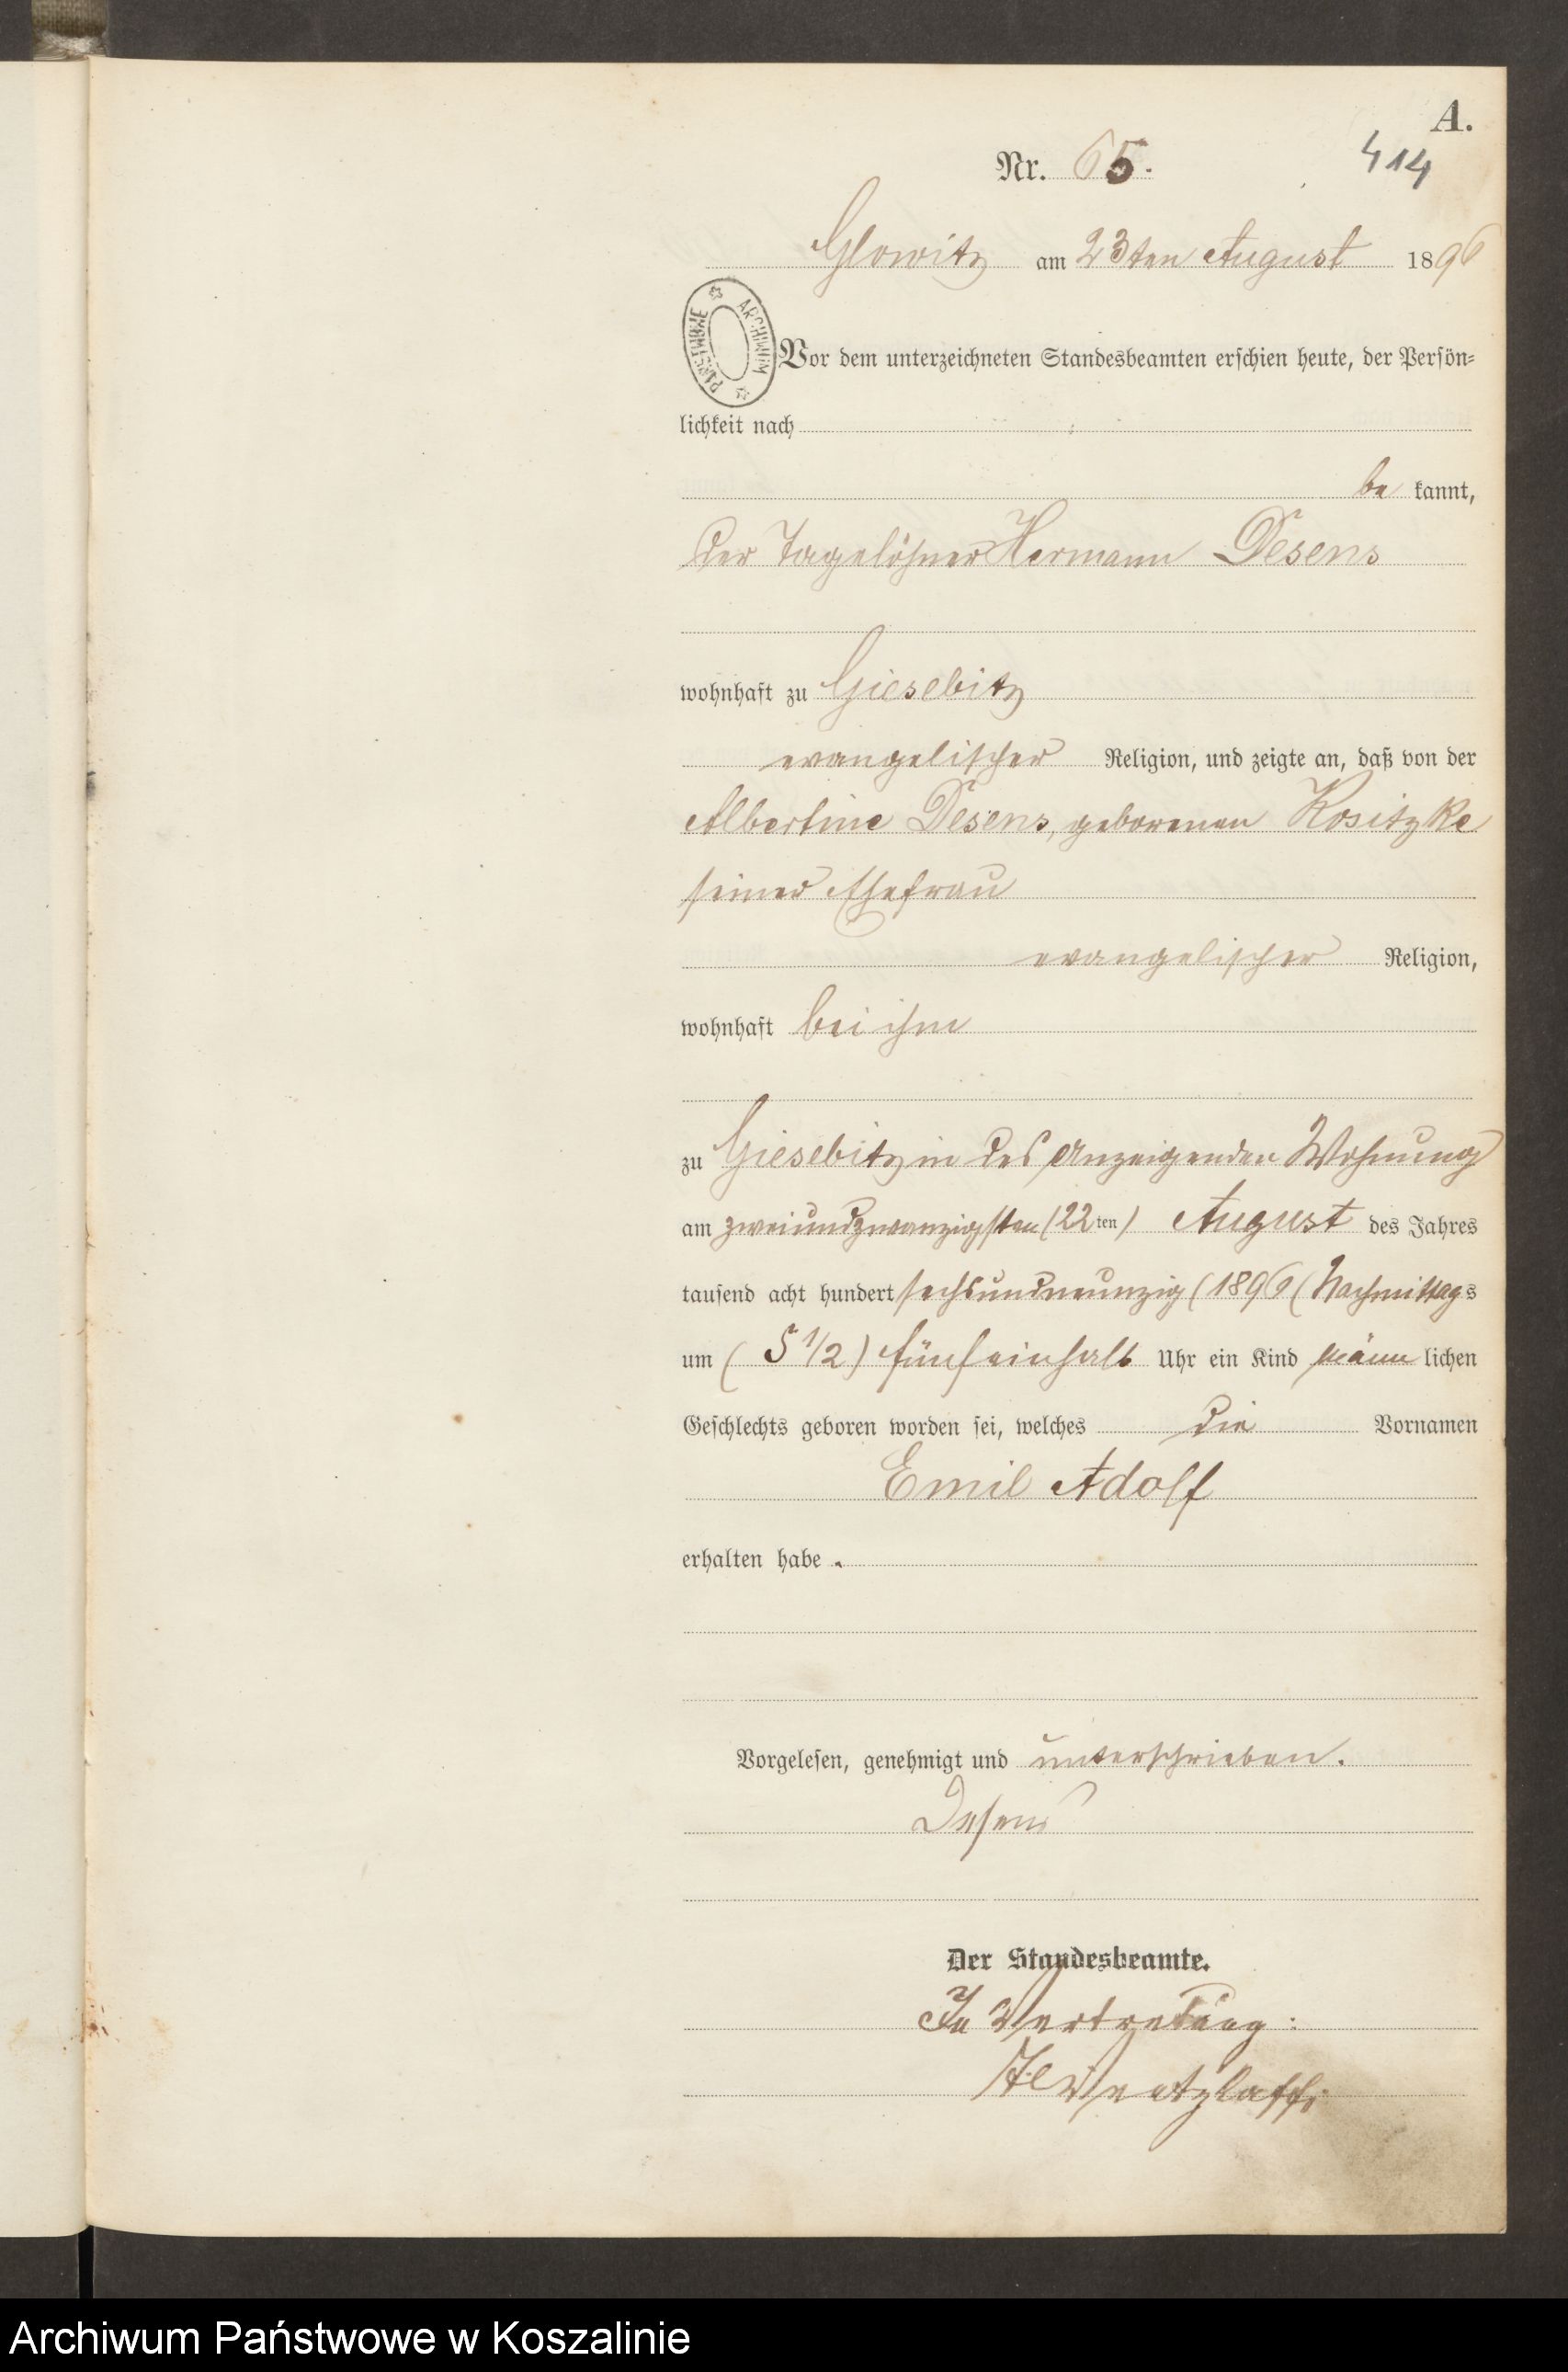 A.
Nr. 65.
414
Glowitz am 23ten August 1896
ARCHIWUM PAŃSTWOWE
Vor dem unterzeichneten Standesbeamten erschien heute, der Persön-
lichkeit nach
be kannt,
der Tagelöhner Hermann Desens
wohnhaft zu Giesebitz
evangelischer Religion, und zeigte an, daß von der
Albertine Desens, geborenen Kositzke
seiner Ehefrau
evangelischer Religion,
wohnhaft bei ihm
zu Giesebitz in des Anzeigenden Wohnung
am zweiundzwanzigsten (22ten) August des Jahres
tausend acht hundert sechsundneunzig (1896( Nachmittags
um ( 5 1/2 ) fünfeinhalb Uhr ein Kind männ lichen
Geschlechts geboren worden sei, welches die Vornamen
Emil Adolf
erhalten habe.
Vorgelesen, genehmigt und unterschrieben.
Desens
Der Standesbeamte.
In Vertretung:
Archiwum Państwowe w Koszalinie